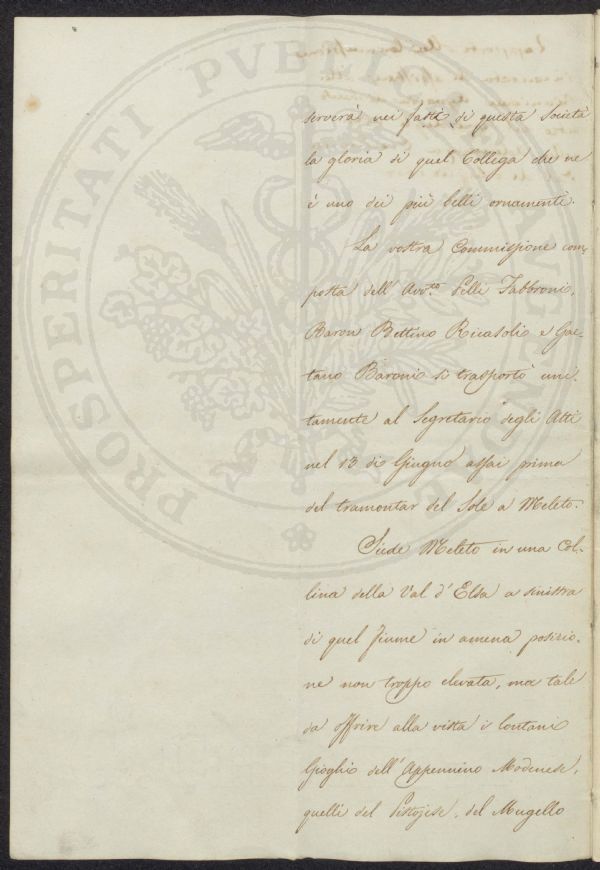 serverà nei fasti di questa Società
la gloria di quel Collega che ne
è uno dei più belli ornamenti.
La vostra Commissione com-
posta dell' Avv.to Pelli Fabbroni,
Baron Bettino Ricasoli e Gae-
tano Baroni si trasportò uni-
tamente al Segretario degli Atti
nel 13 di Giugno assai prima
del tramontar del Sole a Meleto.
Siede Meleto in una Col-
lina della Val d'Elsa a sinistra
di quel fiume in amena posizio-
ne non troppo elevata, ma tale
da offrire alla vista i lontani
Gioghi dell'Appennino Modenese,
quelli del Pistojese, del Mugello
PROSPERITATI PUBLICAE